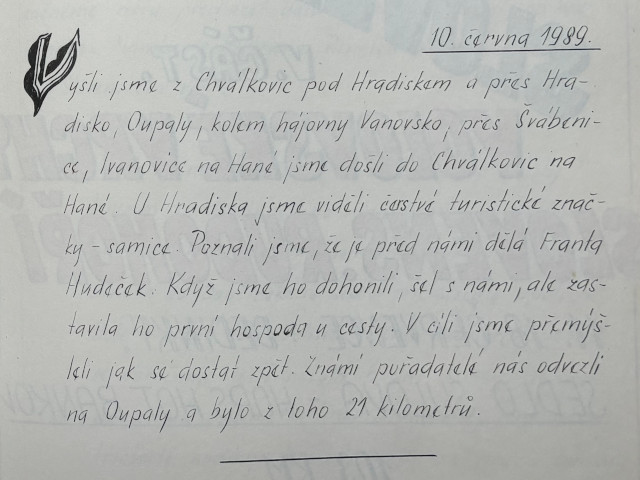 10. června 1989.
Vyšli jsme z Chválkovic pod Hradiskem a přes Hra-
disko, Oupaly, kolem hájovny Vanovsko, přes Švábeni-
ce, Ivanovice na Hané jsme došli do Chválkovic na
Hané. U Hradiska jsme viděli čerstvé turistické znač-
ky - samice. Poznali jsme, že je před námi dělá Franta
Hudeček. Když jsme ho dohonili, šel s námi, ale zas-
tavila ho první hospoda u cesty. V cíli jsme přemýš-
leli jak se dostat zpět. Známí pořadatelé nás odvezli
na Oupaly a bylo z toho 21 kilometrů.